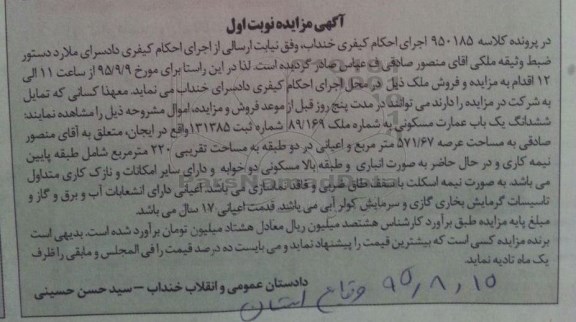 آگهی مزایده نوبت اول
در پرونده کلاسه ۹۵۰۱۸۵ اجرای احکام کیفری خنداب، وفق نیابت ارسالی از اجرای احکام کیفری دادسرای ملارد دستور
ضبط وثیقه ملکی آقای منصور صادقی ف عباس صادر گردیده است. لذا در این راستا برای مورخ ۹۵/۹/۹ از ساعت ۱۱ الی
۱۲ اقدام به مزایده و فروش ملک ذیل در محل اجرای احکام کیفری دادسرای خنداب می نماید. معهذا کسانی که تمایل
به شرکت در مزایده را دارند می توانند در مدت پنج روز قبل از موعد فروش و مزایده، اموال مشروحه ذیل را مشاهده نمایند:
ششدانگ یک باب عمارت مسکونی به شماره ملک ۸۹/۱۶۹ شماره ثبت ۱۳۱۳۸۵ واقع در ایجان، متعلق به آقای منصور
صادقی به مساحت عرصه ۵۷۱/۶۷ متر مربع و اعیانی در دو طبقه به مساحت تقریبی ۲۲۰ مترمربع شامل طبقه پایین
نیمه کاری و در حال حاضر به صورت انباری و طبقه بالا مسکونی دو خوابه و دارای سایر امکانات و نازک کاری متداول
می باشد. به صورت نیمه اسکلت با سقف طاق ضربی و فاقد نماسازی است. اعیانی دارای انشعابات آب و برق و گاز و
تاسیسات گرمایش بخاری گازی و سرمایش کولر آبی می باشد. قدمت اعیانی ۱۷ سال می باشد.
مبلغ پایه مزایده طبق برآورد کارشناس هشتصد میلیون ریال معادل هشتاد میلیون تومان برآورد شده است. بدیهی است
برنده مزایده کسی است که بیشترین قیمت را پیشنهاد نماید و می بایست ده درصد قیمت را فی المجلس و مابقی را ظرف
یک ماه تادیه نماید.
دادستان عمومی و انقلاب خنداب – سید حسن حسینی
۹۵/۸/۱۵ وقایع استان